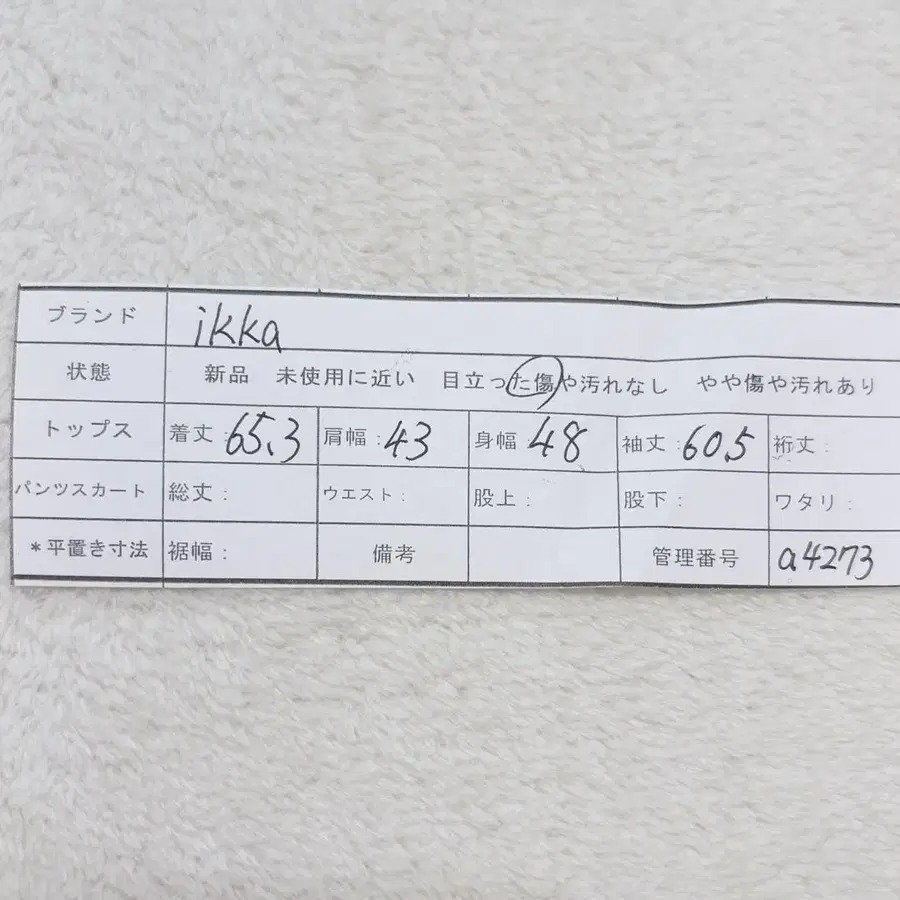 ブランド ikka
状態 新品 未使用に近い 目立った傷や汚れなし やや傷や汚れあり
トップス 着丈:65.3 肩幅:43 身幅:48 袖丈:60.5 裄丈:
パンツスカート 総丈: ウエスト: 股上: 股下: ワタリ:
*平置き寸法 裾幅: 備考 管理番号 a4273